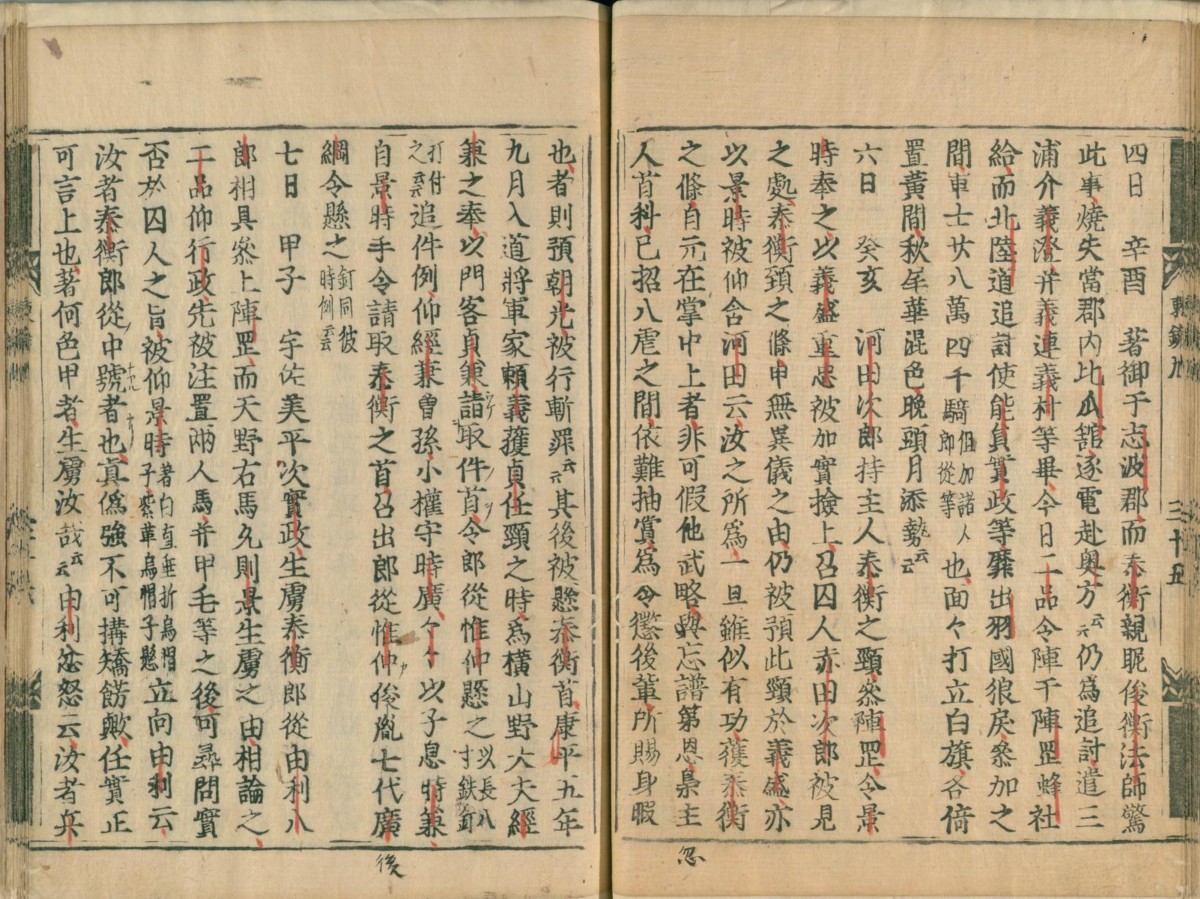 四日 辛酉 著御于志波郡而泰衡親昵俊衡法師驚
此事燒失當郡內比爪舘逐電赴奥方云云仍爲追討遣三
浦介義澄幷義連義村等畢今日二品令陣于陣罡蜂社
給而北陸道追討使能員實政等靡出羽國狼戻參加之
間軍士廿八萬四千騎但加諸人郎從等也面々打立白旗各倚
置黄間秋尾華混色晚頭月添勢云云
六日 癸亥 河田次郎持主人泰衡之頸參陣罡令景
時奉之以義盛重忠被加實撿上召囚人赤田次郎被見
之處泰衡頚之條申無異儀之由仍被預此頸於義盛亦
以景時被仰含河田云汝之所爲一旦雖似有功獲泰衡
之條自元在掌中上者非可假他武略與忘譜第恩梟主
人首科已招八虐之間依難抽賞爲令懲後輩所賜身暇
忽
也者則預朝光被行斬罪云云其後被懸泰衡首康平五年
九月入道將軍家賴義獲貞任頸之時爲橫山野大夫經
兼之奉以門客貞兼請取件首令郎從惟仲懸之以長八寸鉄釘
打付之云云追件例仰經兼曾孫小權守時廣々々以子息時兼
自景時手令請取泰衡之首召出郎從惟仲後胤七代廣
後
綱令懸之釘同彼時例云云
七日 甲子 宇佐美平次實政生虜泰衡郎從由利八
郎相具參上陣罡而天野右馬允則景生虜之由相論之
二品仰行政先被注置兩人馬幷甲毛等之後可尋問實
否於囚人之旨被仰景時著白直垂折烏帽子紫革烏帽子懸立向由利云
汝者泰衡郎從中號者也眞僞強不可搆矯餝歟任實正
可言上也著何色甲者生虜汝哉云云由利忿怒云汝者兵
東鑑九
三十五